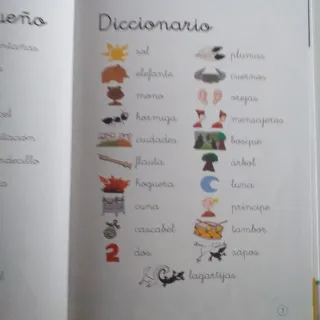 ueño
Diccionario
sol
elefante
mono
hormiga
ciudades
flauta
hoguera
cuna
cascabel
dos
plumas
cuernos
orejas
mensajeros
bosque
árbol
luna
príncipe
tambor
sapos
lagartijas